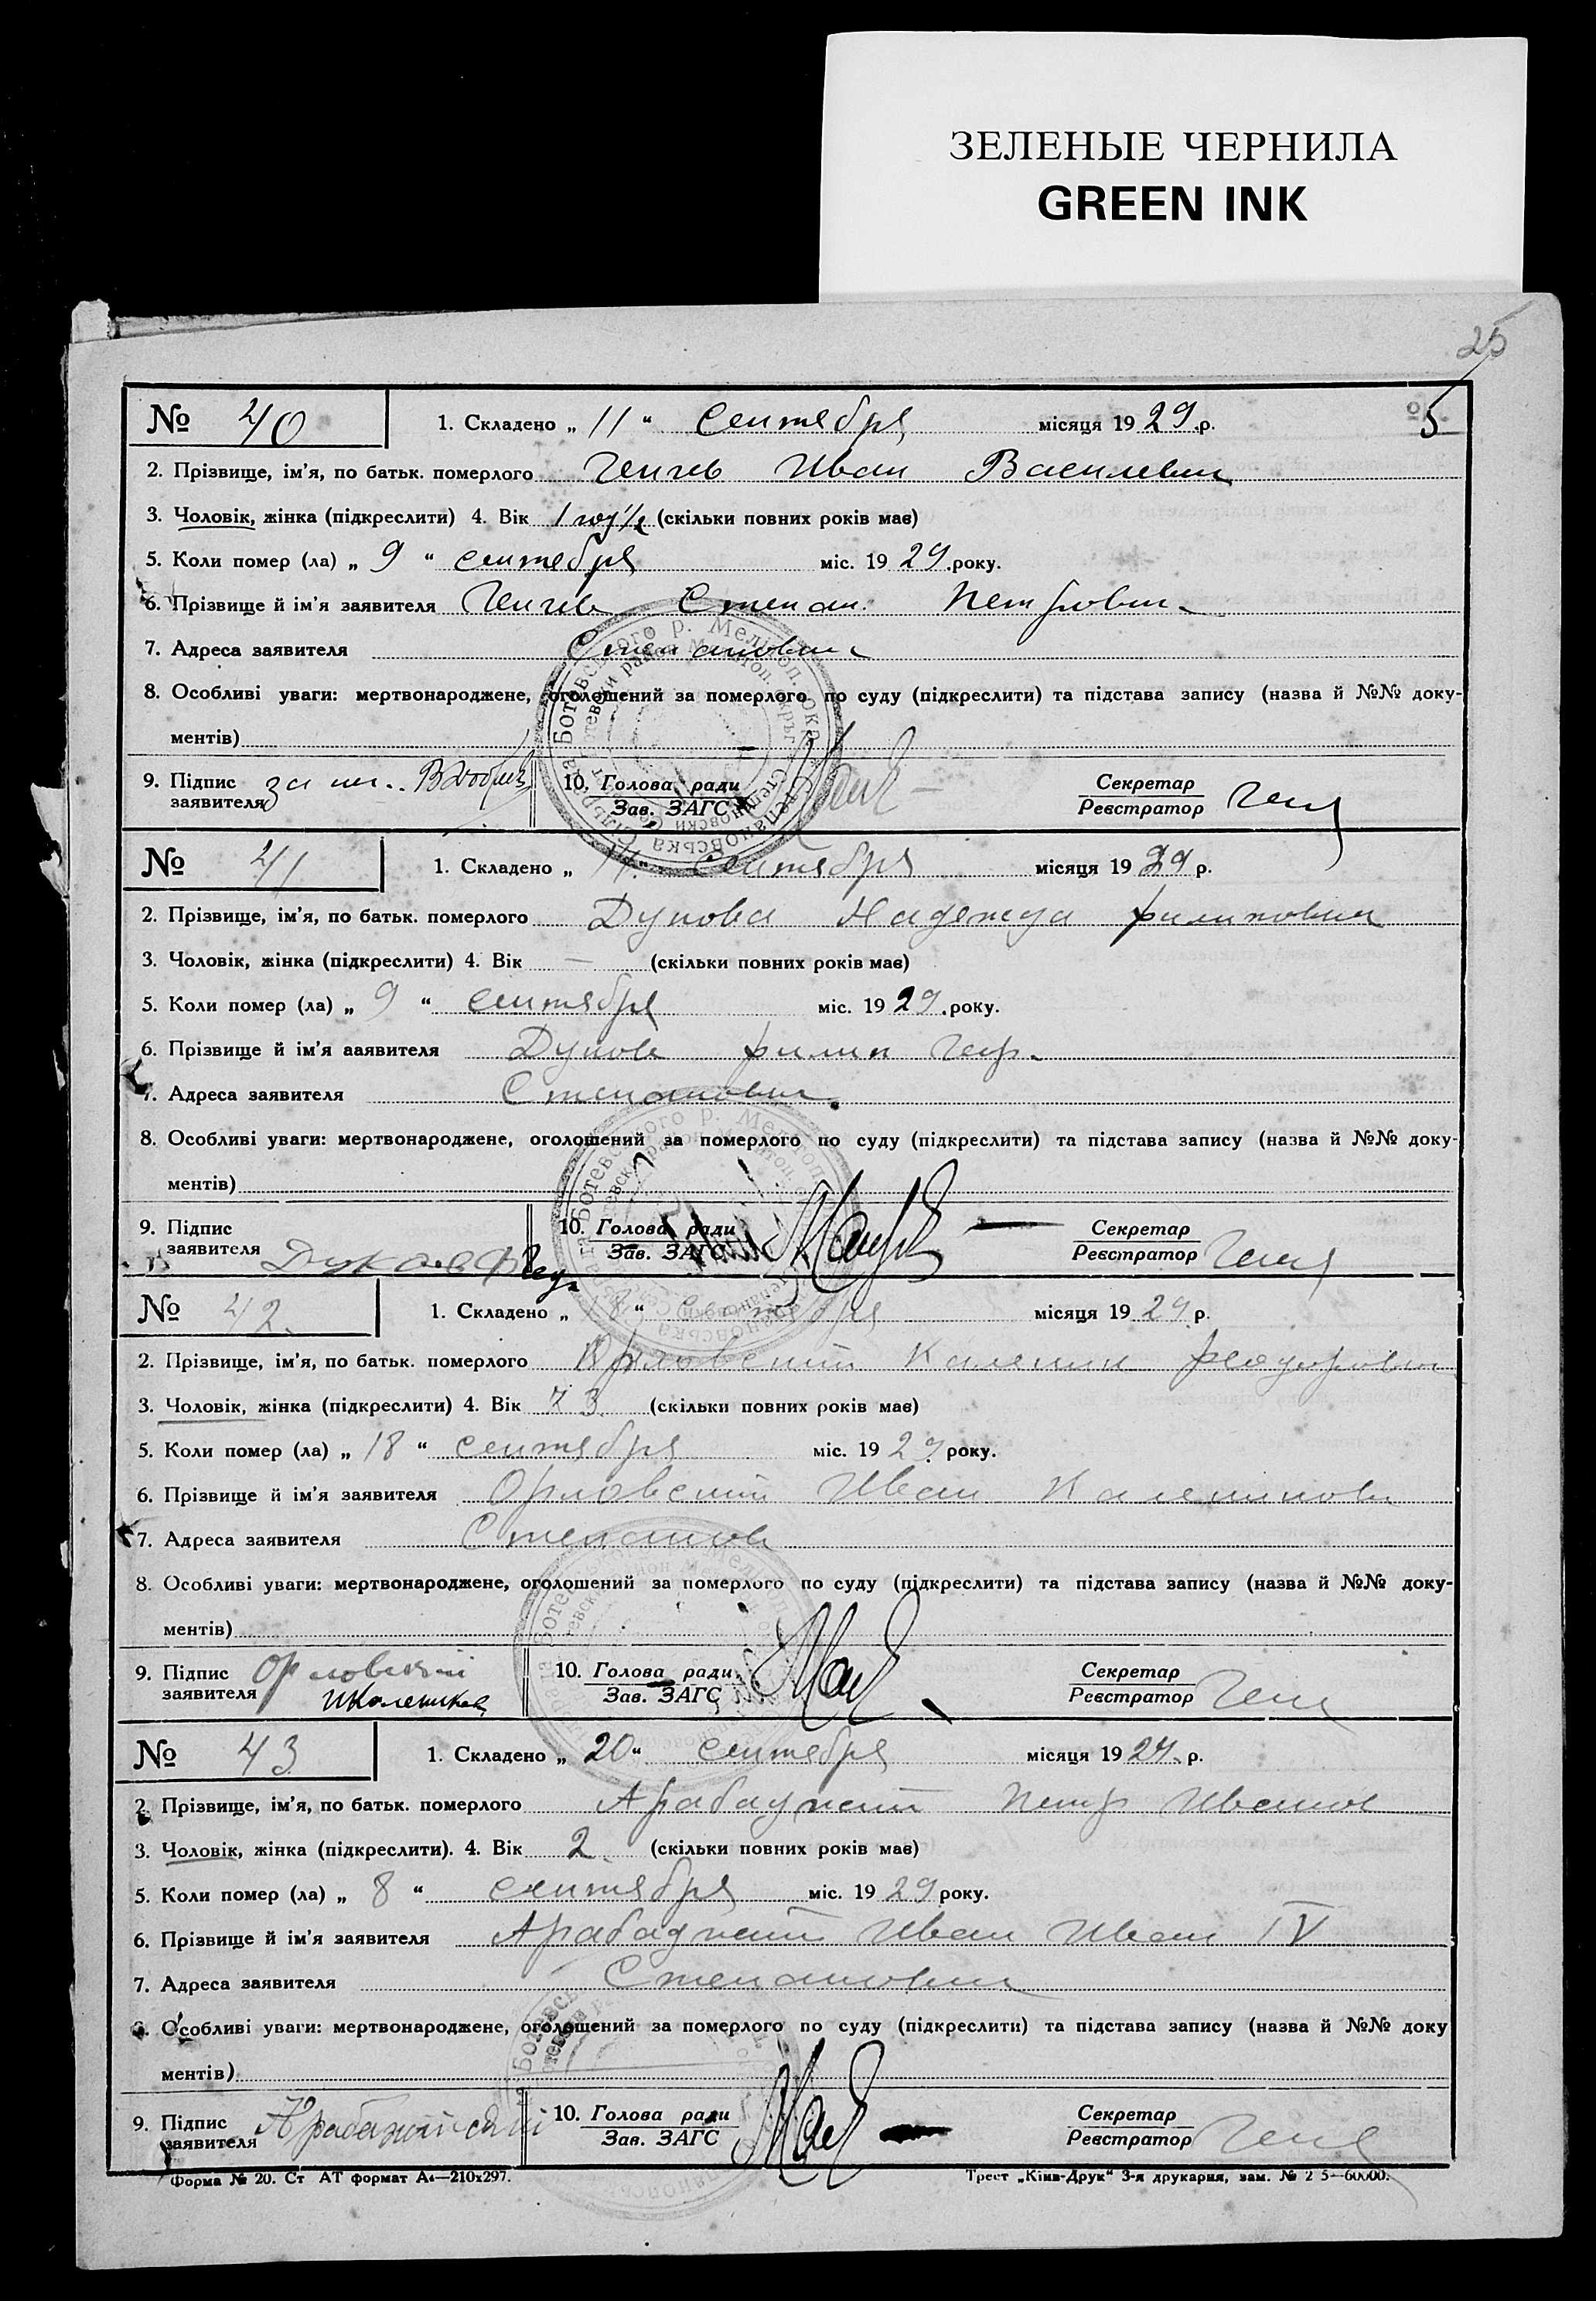 ЗЕЛЕНЫЕ ЧЕРНИЛА
GREEN INK
25
5
№ 40 1. Складено „ 11 “ сентября місяця 1929 р.
2. Прізвище, ім'я, по батьк. померлого Генчев Иван Василевич
3. Чоловік, жінка (підкреслити) 4. Вік 1 год ½ (скільки повних років має)
5. Коли помер (ла) „ 9 “ сентября міс. 1929 року.
6. Прізвище й ім'я заявителя Генчев Степан Петрович
7. Адреса заявителя Степановка
8. Особливі уваги: мертвонароджене, оголошений за померлого по суду (підкреслити) та підстава запису (назва й №№ доку-
ментів)
9. Підпис заявителя за 10. Голова ради Зав. ЗАГС Секретар Реєстратор
№ 41 1. Складено „ 11 “ сентября місяця 1929 р.
2. Прізвище, ім'я, по батьк. померлого Дукова Надежда Филиповна
3. Чоловік, жінка (підкреслити) 4. Вік — (скільки повних років має)
5. Коли помер (ла) „ 9 “ сентября міс. 1929 року.
6. Прізвище й ім'я заявителя Дуков Филип
7. Адреса заявителя Степановка
8. Особливі уваги: мертвонароджене, оголошений за померлого по суду (підкреслити) та підстава запису (назва й №№ доку-
ментів)
9. Підпис заявителя Дуков Ф 10. Голова ради Зав. ЗАГС Секретар Реєстратор
№ 42 1. Складено „ 18 “ сентября місяця 1929 р.
2. Прізвище, ім'я, по батьк. померлого Орловский Каленик Феодорович
3. Чоловік, жінка (підкреслити) 4. Вік 73 (скільки повних років має)
5. Коли помер (ла) „ 18 “ сентября міс. 1929 року.
6. Прізвище й ім'я заявителя Орловский Иван Каленикови
7. Адреса заявителя Степановк
8. Особливі уваги: мертвонароджене, оголошений за померлого по суду (підкреслити) та підстава запису (назва й №№ доку-
ментів)
9. Підпис заявителя Орловский 10. Голова ради Зав. ЗАГС Секретар Реєстратор
№ 43 1. Складено „ 20 “ сентября місяця 1929 р.
2. Прізвище, ім'я, по батьк. померлого Арабаджи Петр Иванов
3. Чоловік, жінка (підкреслити). 4. Вік 2 (скільки повних років має)
5. Коли помер (ла) „ 8 “ сентября міс. 1929 року.
6. Прізвище й ім'я заявителя Иван Иван IV
7. Адреса заявителя Степановка
8. Особливі уваги: мертвонароджене, оголошений за померлого по суду (підкреслити) та підстава запису (назва й №№ доку
ментів)
9. Підпис заявителя 10. Голова ради Зав. ЗАГС Секретар Реєстратор
Форма № 20. Ст АТ формат А4—210х297. Трест „Київ-Друк“ 3-я друкарня, зам. № 2 5—60000.